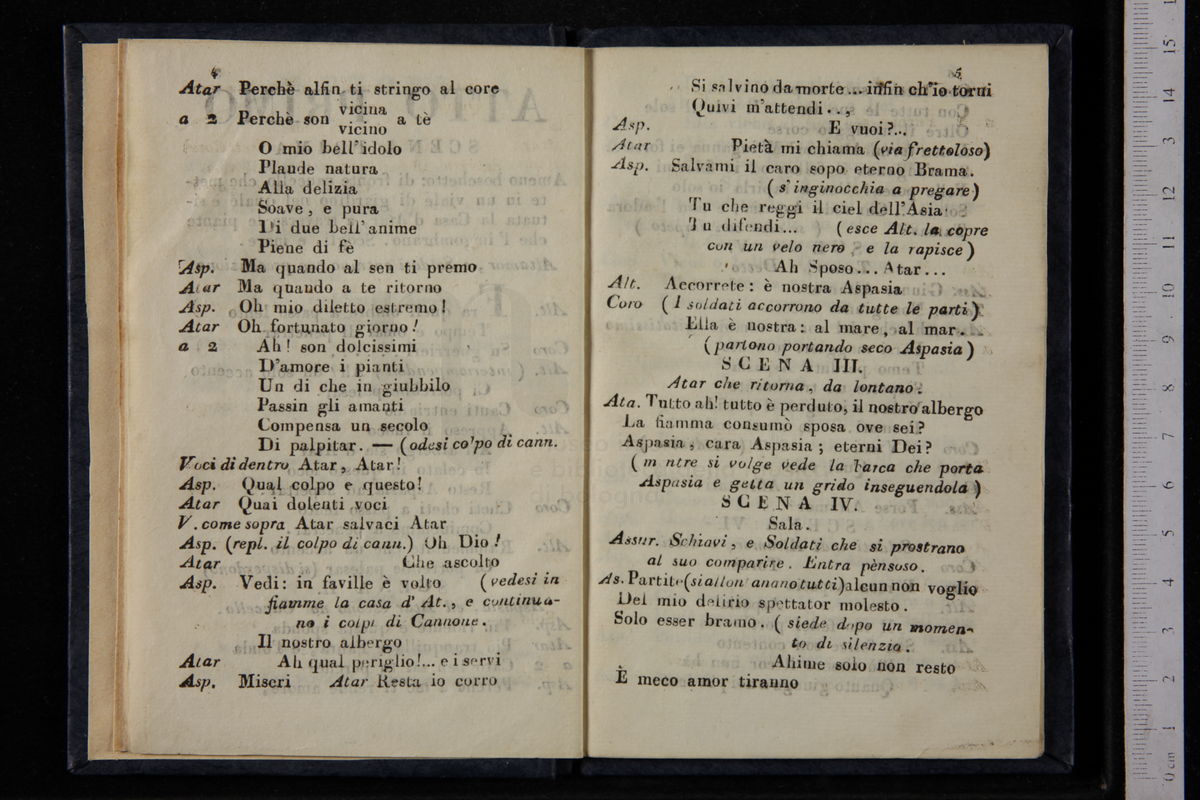 4
Atar Perchè alfin ti stringo al core
vicina
a 2 Perchè son a tè
vicino
O mio bell'idolo
Plaude natura
Alla delizia
Soave, e pura
Di due bell'anime
Piene di fè
Asp. Ma quando al sen ti premo
Atar Ma quando a te ritorno
Asp. Oh mio diletto estremo!
Atar Oh fortunato giorno!
a 2 Ah! son dolcissimi
D'amore i pianti
Un di che in giubbilo
Passin gli amanti
Compensa un secolo
Di palpitar. — (odesi colpo di cann.
Voci di dentro Atar, Atar!
Asp. Qual colpo e questo!
Atar Quai dolenti voci
V. come sopra Atar salvaci Atar
Asp. (repl. il colpo di cann.) Oh Dio!
Atar Che ascolto
Asp. Vedi: in faville è volto (vedesi in
fiamme la casa d' At., e continua-
no i colpi di Cannone.
Il nostro albergo
Atar Ah qual periglio!... e i servi
Asp. Miseri Atar Resta io corro
5
Si salvino da morte... infin ch'io torni
Quivi m'attendi...
Asp. E vuoi?...
Atar Pietà mi chiama (via frettoloso)
Asp. Salvami il caro sopo eterno Brama.
(s'inginocchia a pregare)
Tu che reggi il ciel dell'Asia
Tu difendi... (esce Alt. la copre
con un velo nero, e la rapisce)
Ah Sposo... Atar...
Alt. Accorrete: è nostra Aspasia
Coro (I soldati accorrono da tutte le parti)
Ella è nostra: al mare, al mar.
(partono portando seco Aspasia)
SCENA III.
Atar che ritorna, da lontano.
Ata. Tutto ah! tutto è perduto, il nostro albergo
La fiamma consumò sposa ove sei?
Aspasia, cara Aspasia; eterni Dei?
(m ntre si volge vede la barca che porta
Aspasia e getta un grido inseguendola)
SCENA IV.
Sala.
Assur. Schiavi, e Soldati che si prostrano
al suo comparire. Entra pènsoso.
As. Partite (si allon anano tutti) alcun non voglio
Del mio delirio spettator molesto.
Solo esser bramo. (siede dopo un momen-
to di silenzio.
Ahime solo non resto
È meco amor tiranno
15
14
13
12
11
10
9
8
7
6
5
4
3
2
1
0 cm